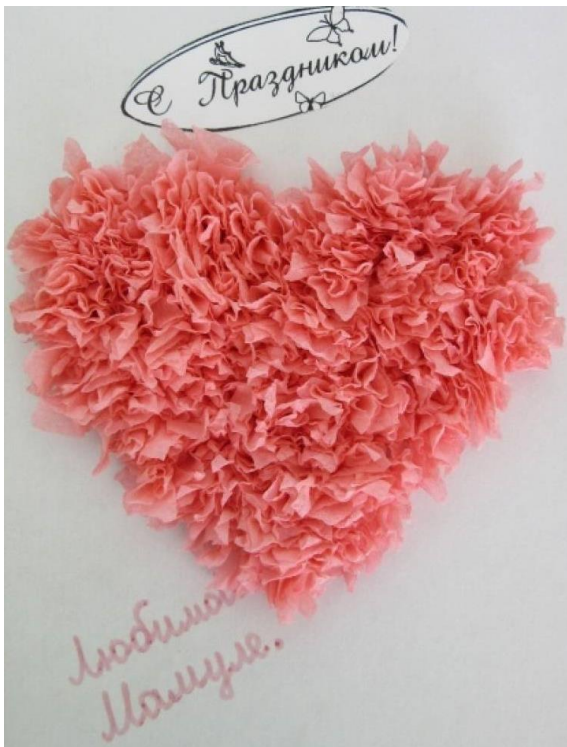 С Праздником!
Любимой
Мамуле.